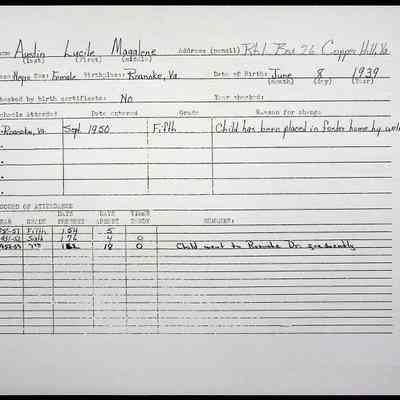 ame Austin Lucile Magalene Address (pencil) Rt 1 Box 26 Copper Hill, Va
(last) (first) (middle)
Negro Sex: Female Birthplace: Roanoke, Va. Date of Birth: June 8 1939
(month) (day) (year)
hecked by birth certificate: No Year checked:
chools Attended: Date entered Grade Reason for change
Roanoke, Va. Sept. 1950 Fifth Child has been placed in foster home by welf
ECORD OF ATTENDANCE
EAR GRADE DAYS PRESENT DAYS ABSENT TIMES TARDY REMARKS:
50-51 Fifth 154 5
51-52 Sixth 176 4 0
52-53 7th 162 18 0 Child went to Roanoke